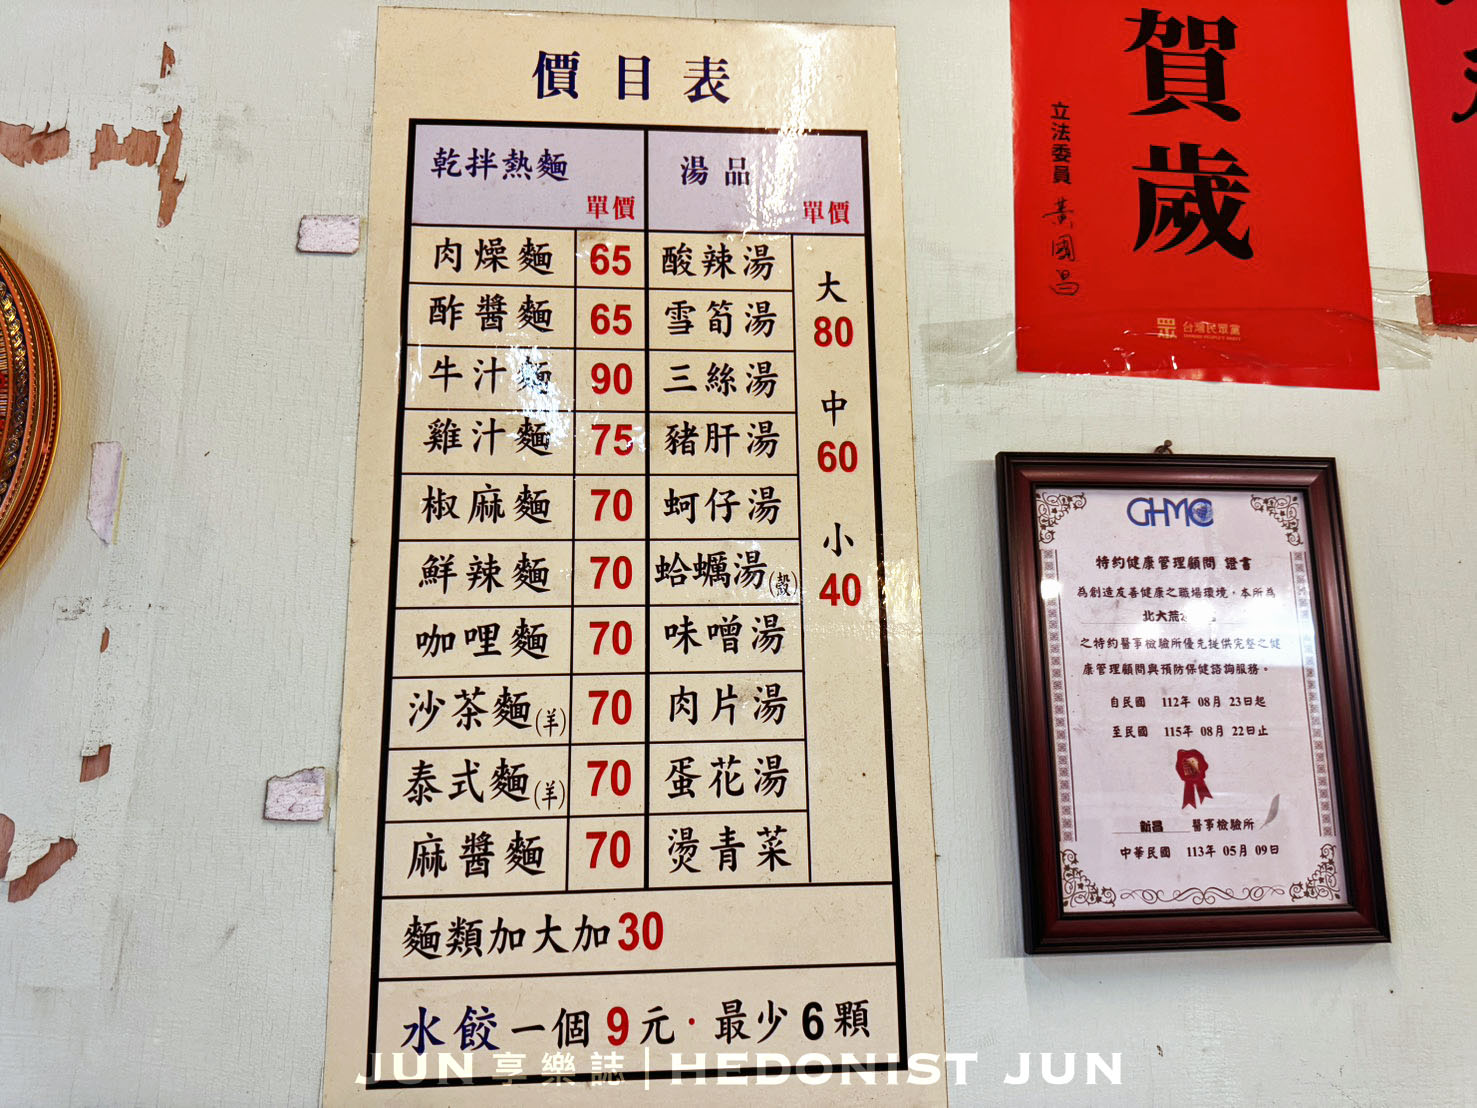 價目表
乾拌熱麵 單價
湯品 單價
肉燥麵 65
酢醬麵 65
牛汁麵 90
雞汁麵 75
椒麻麵 70
鮮辣麵 70
咖哩麵 70
沙茶麵(羊) 70
泰式麵(羊) 70
麻醬麵 70
酸辣湯
雪筍湯
三絲湯
豬肝湯
蚵仔湯
蛤蠣湯(殼)
味噌湯
肉片湯
蛋花湯
燙青菜
大
80
中
60
小
40
麵類加大加30
水餃一個9元·最少6顆
賀歲
立法委員 黃國昌
眾 台灣民眾黨
TAIWAN PEOPLE'S PARTY
GHMC
特約健康管理顧問 證書
為創造友善健康之職場環境,本所為
北大荒
之特約醫事檢驗所優先提供完整之健
康管理顧問與預防保健諮詢服務。
自民國 112年 08月 23日起
至民國 115年 08月 22日止
新昌 醫事檢驗所
中華民國 113年 05月 09日
JUN享樂誌|HEDONIST JUN